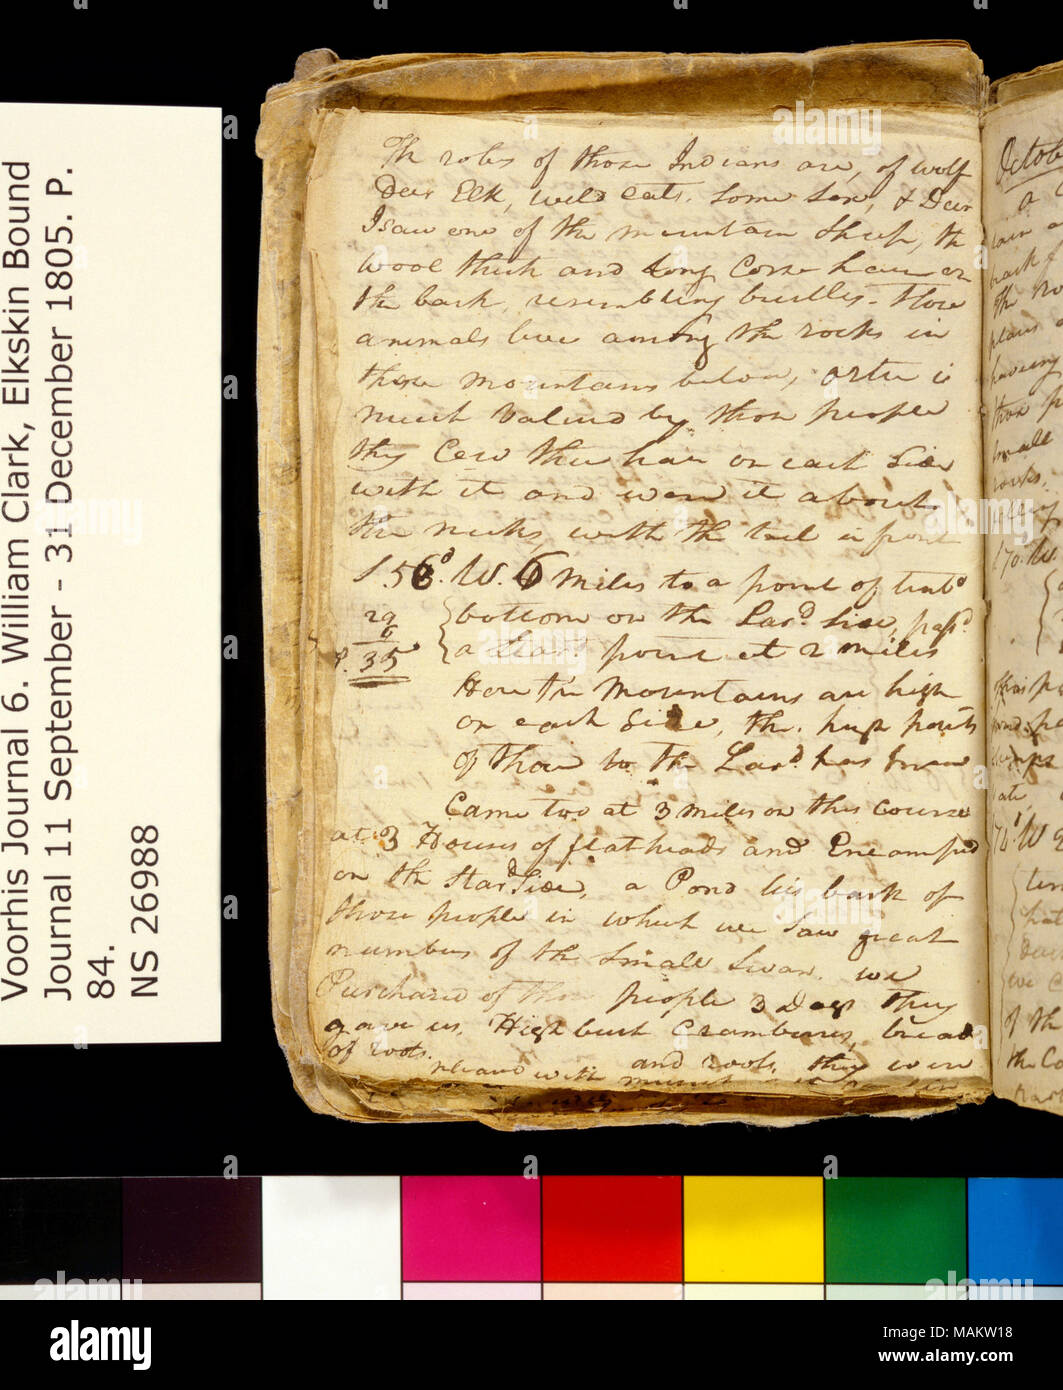 Voorhis Journal 6. William Clark, Elkskin Bound
Journal 11 September - 31 December 1805. P.
84.
NS 26988
The robes of those Indians are, of wolf
Deer Elk, wild cats. Some fox, & Deer
I saw one of the mountain Sheep, th
wool thick and long Corse hair on
the back, resembling bristles. those
animals live among the rocks in
those mountains below, orter is
much valued by those people
they Cew their hair on each Side
with it and wear it about
the necks, with the tail in front
S 56°. W. 6 miles to a point of timbd
29
6
P. 35
bottom on the Lard. Side, passd.
a Stard point at 2 miles
Here the mountains are high
on each Side, the high points
of those to the Lard. has Snow
Came too at 3 miles on this Course
at 3 Houses of flatheads and Encamped
on the Stard Side, a Pond lies back of
those people in which we Saw great
numbers of the Small Swan. we
Purchased of those people 3 Dogs they
gave us High bush Cramburies, bread
of roots.
and roots. they were
relaxd with musick
Octobe
a
alamy stock photo
MAKW18
www.alamy.com